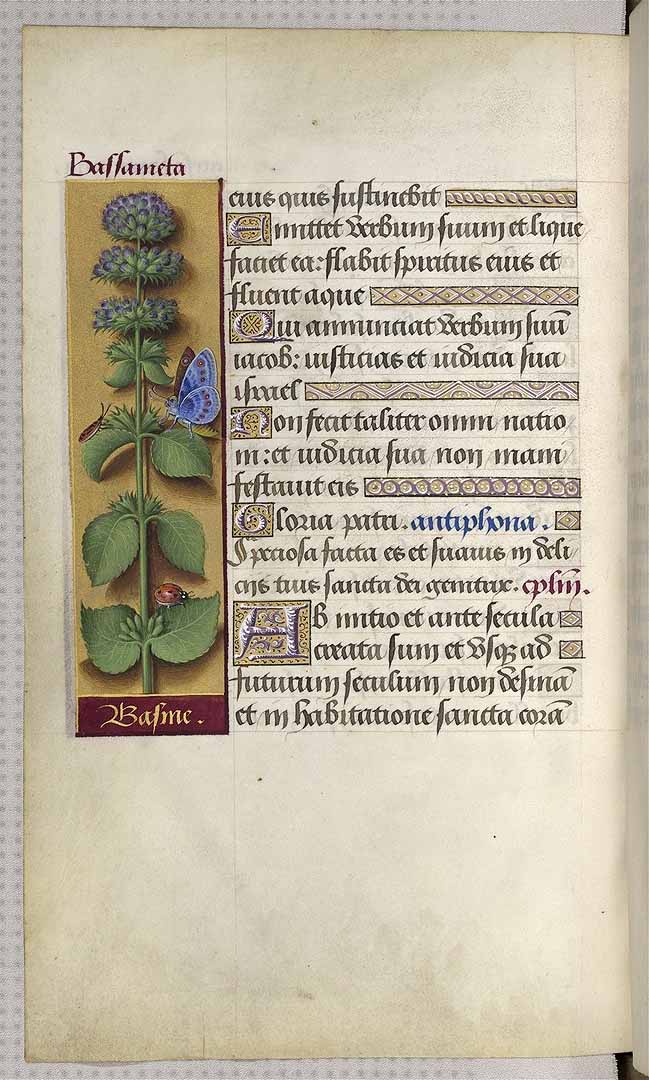 Bassameta
eius quis sustinebit
Emittet verbum suum et lique
faciet ea: flabit spiritus eius et
fluent aque
Qui annunciat verbum suũ
iacob: iusticias et iudicia sua
israel
Non fecit taliter omni natio
ni: et iudicia sua non mani
festauit eis
Gloria patri. antiphona.
Speciosa facta es et suauis in deli
ciis tuis sancta dei genitrix. cplm̃.
AB initio et ante secula
creata sum et vsqz ad
futurum seculum non desinã
et in habitatione sancta corã
Basme.